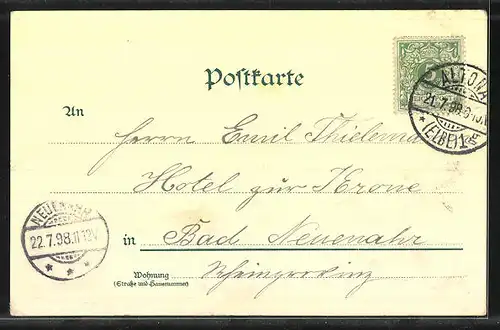 Postkarte
ALTONA
21.7.98.
(ELBE)1
An
Herrn Emil Thielema
Hotel zur Krone
NEUENAHR
22.7.98.11-12V
in Bad Neuenahr
Rheinprovinz
Wohnung
(Straße und Hausnummer)